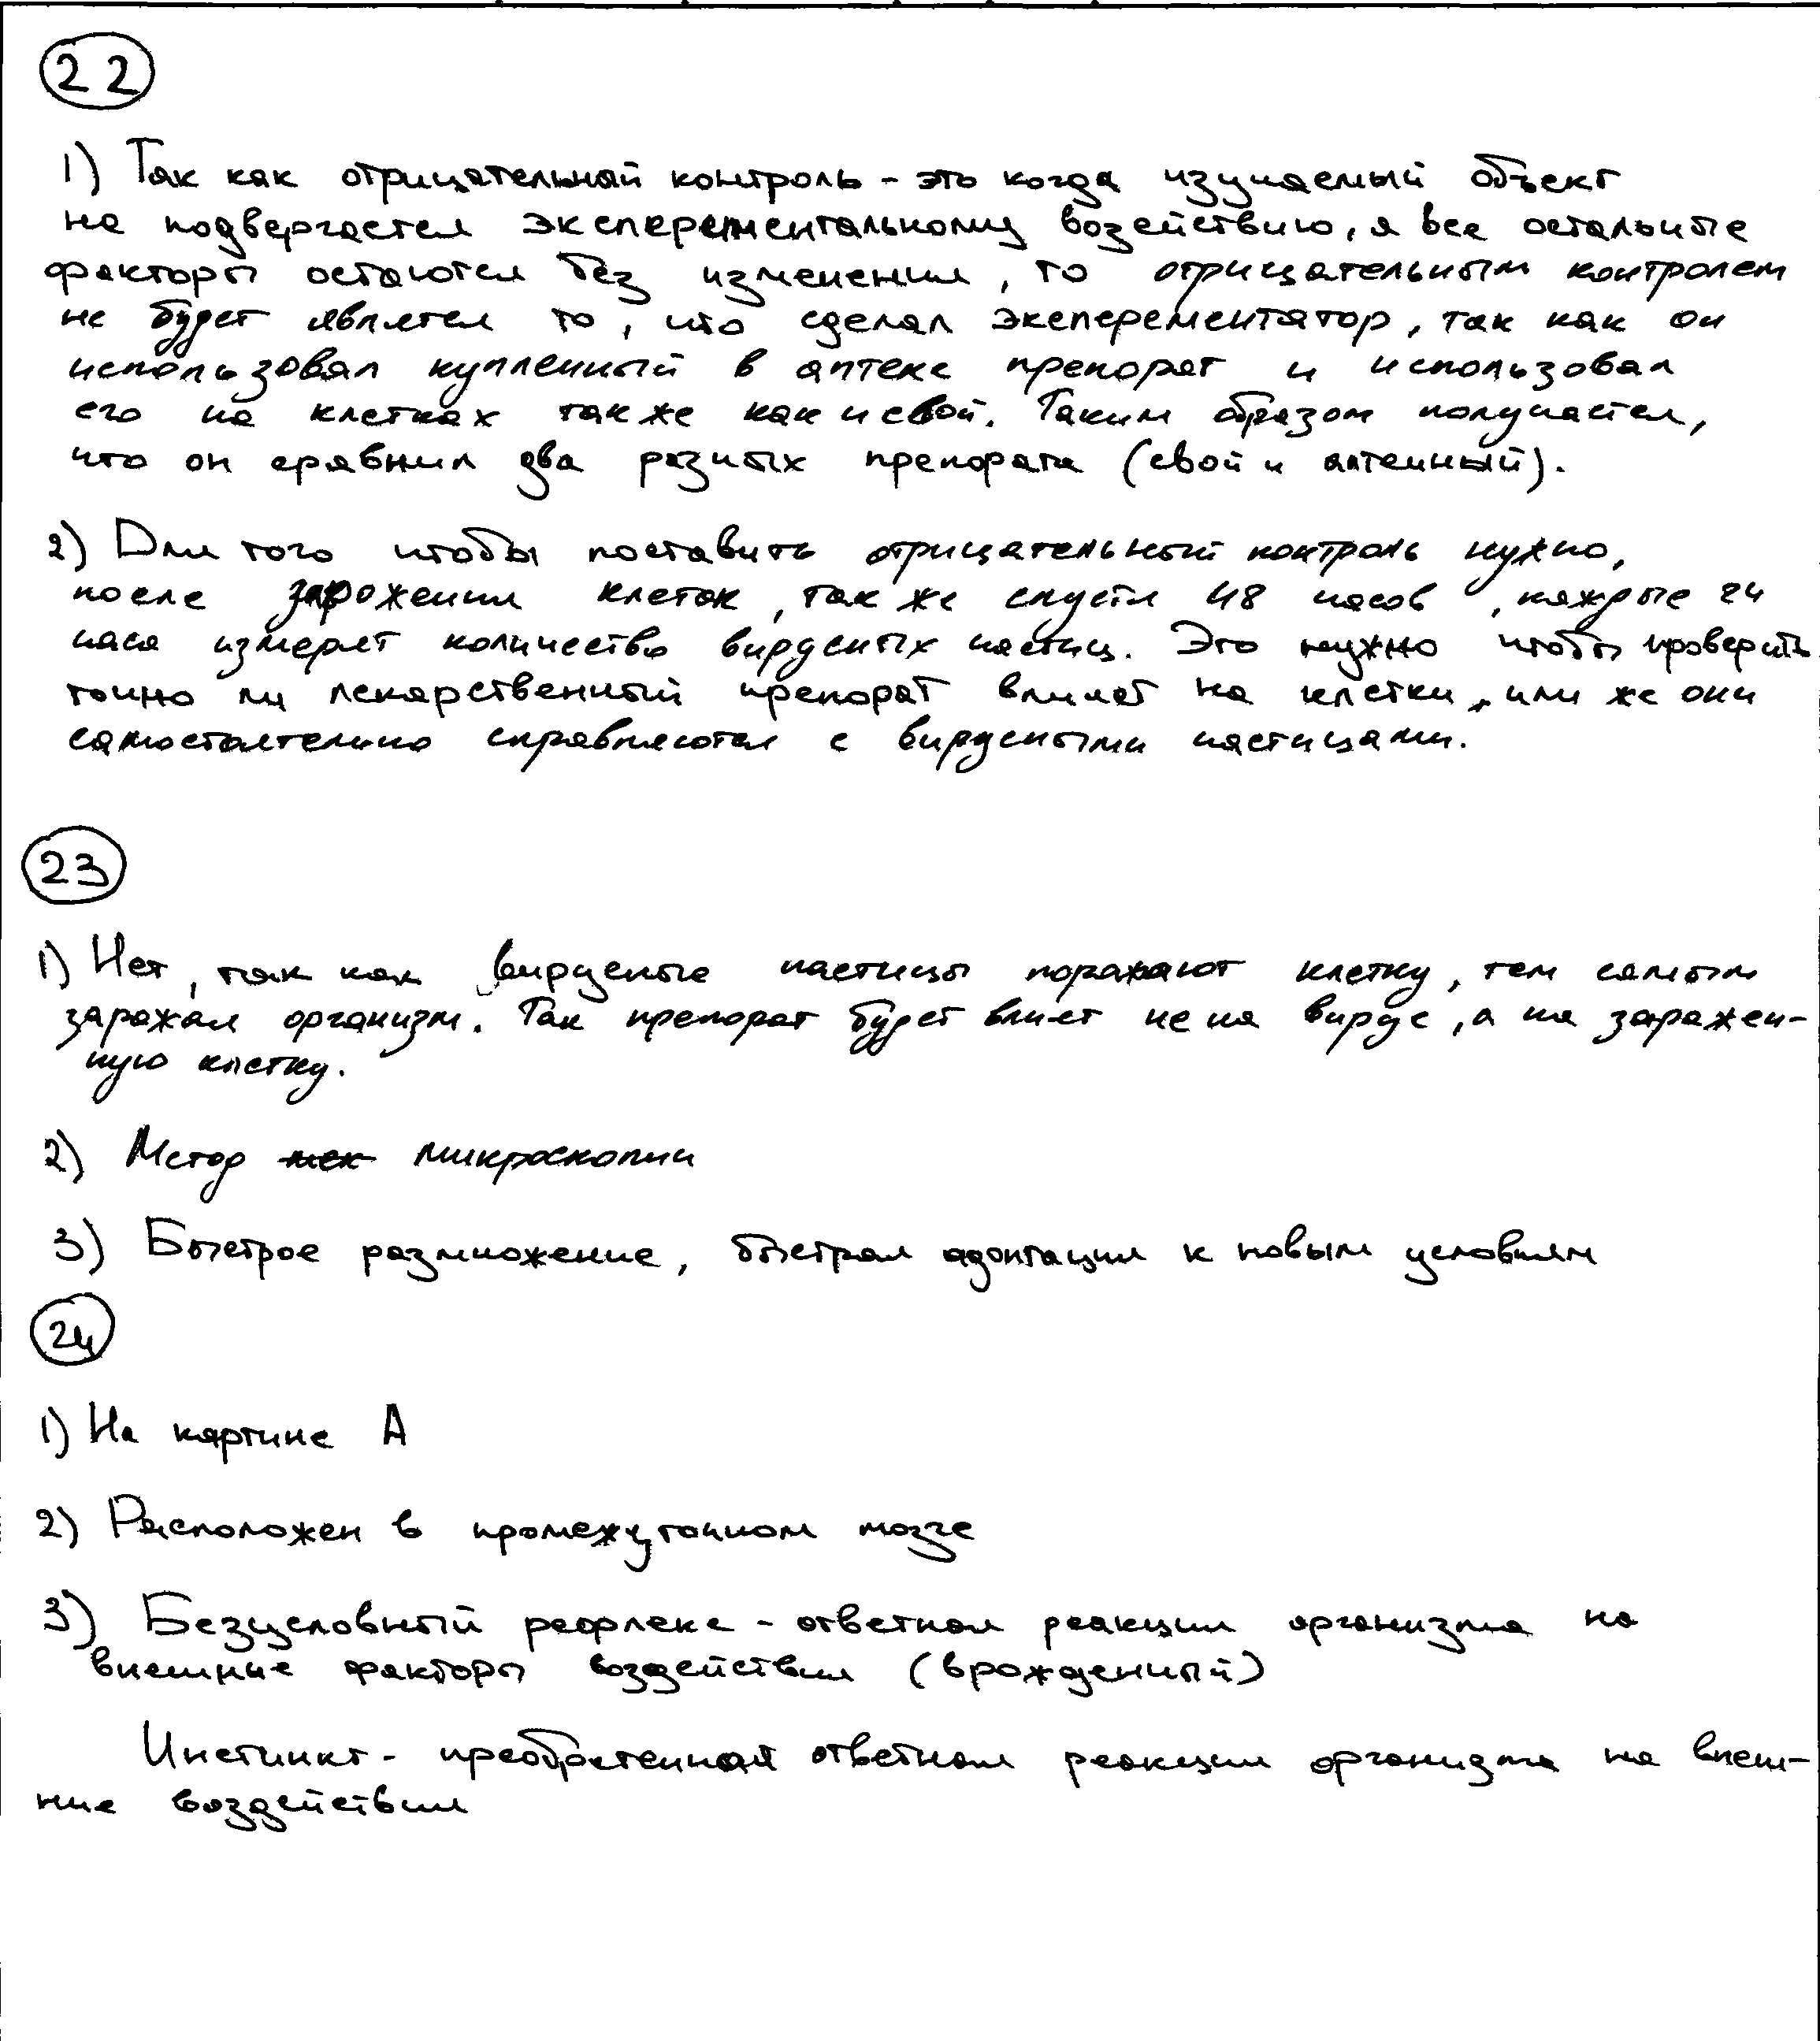 22
1) Так как отрицательный контроль - это когда изучаемый объект
не подвергается эксперементальному возействию, а все остальные
факторы остаются без изменения, то отрицательным контролем
не будет является то, что сделал эксперементатор, так как он
использовал купленный в аптеке препорат и использовал
его на клетках также как и свой. Таким образом получается,
что он сравнил два разных препората (свой и аптечный).
2) Для того чтобы поставить отрицательный контроль нужно,
после зарожения клеток, так же спустя 48 часов, каждые 24
часа измерят количество вирусных частиц. Это нужно чтобы проверить
точно ли лекарственный препорат влияет на клетки, или же они
самостоятельно справляются с вирусными частицами.
23
1) Нет, так как вирусные частицы поражают клетку, тем самым
заражая организм. Так препорат будет влиет не на вирус, а на заражен-
ную клетку.
2) Метод микроскопии
3) Быстрое размножение, быстрая адоптация к новым условиям
24
1) На картине А
2) Расположен в промежуточном мозге
3) Безусловный рефлекс - ответная реакция организма на
внешние факторы воздействия (врожденный)
Инстинкт - преобретенная ответная реакция организма на внеш-
ние воздействия